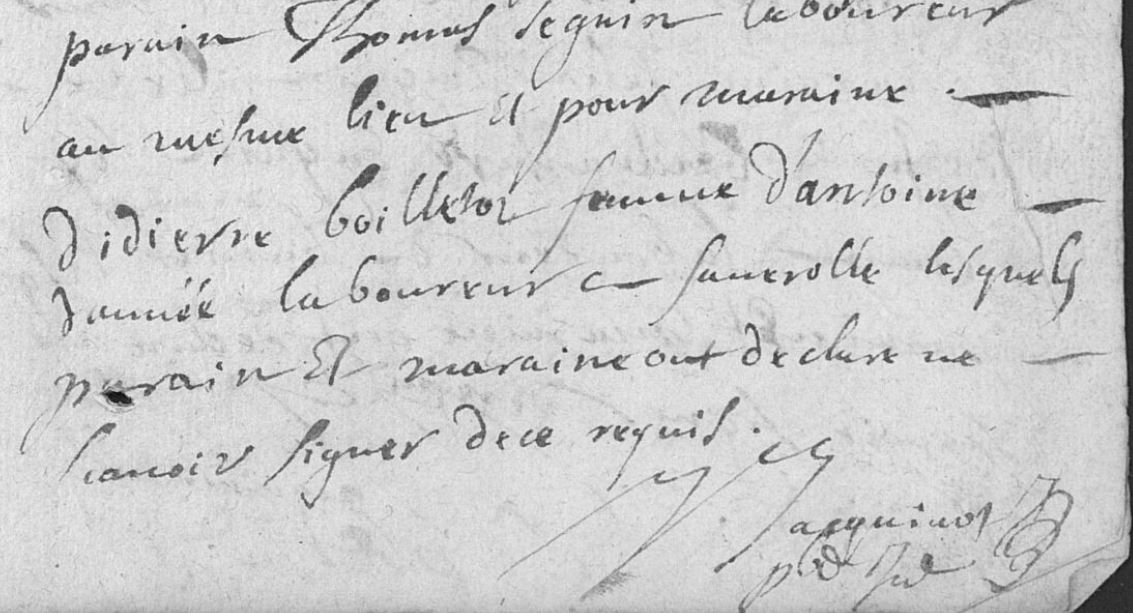 parain Thomas Seguin laboureur
au mesme lieu et pour maraine
Didierre boilletot femme d'antoine
laboureur a lesquels
parain Et maraine ont declare ne
scavoir signer dece requis.
Jacquinot